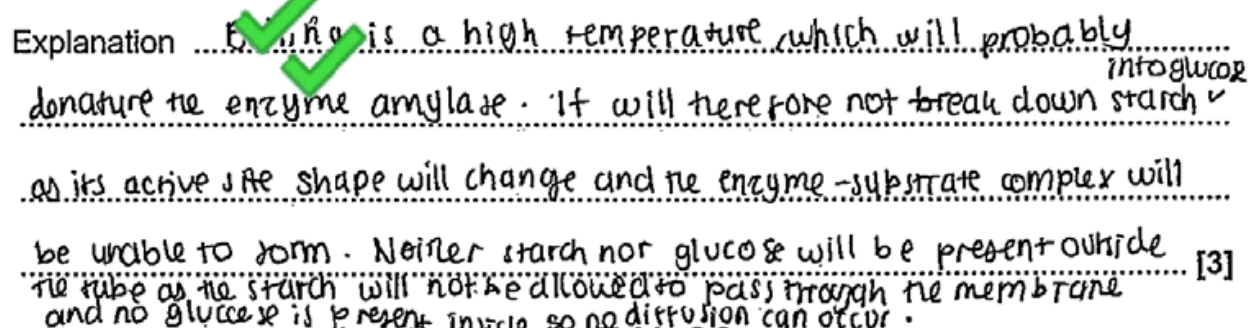 Explanation is a high temperature which will probably
into glucose
denature the enzyme amylase. It will therefore not break down starch
as its active site shape will change and the enzyme-substrate complex will
be unable to form. Neither starch nor glucose will be present outside
[3]
the tube as the starch will not be allowed to pass through the membrane
and no glucose is present inside so no diffusion can occur.